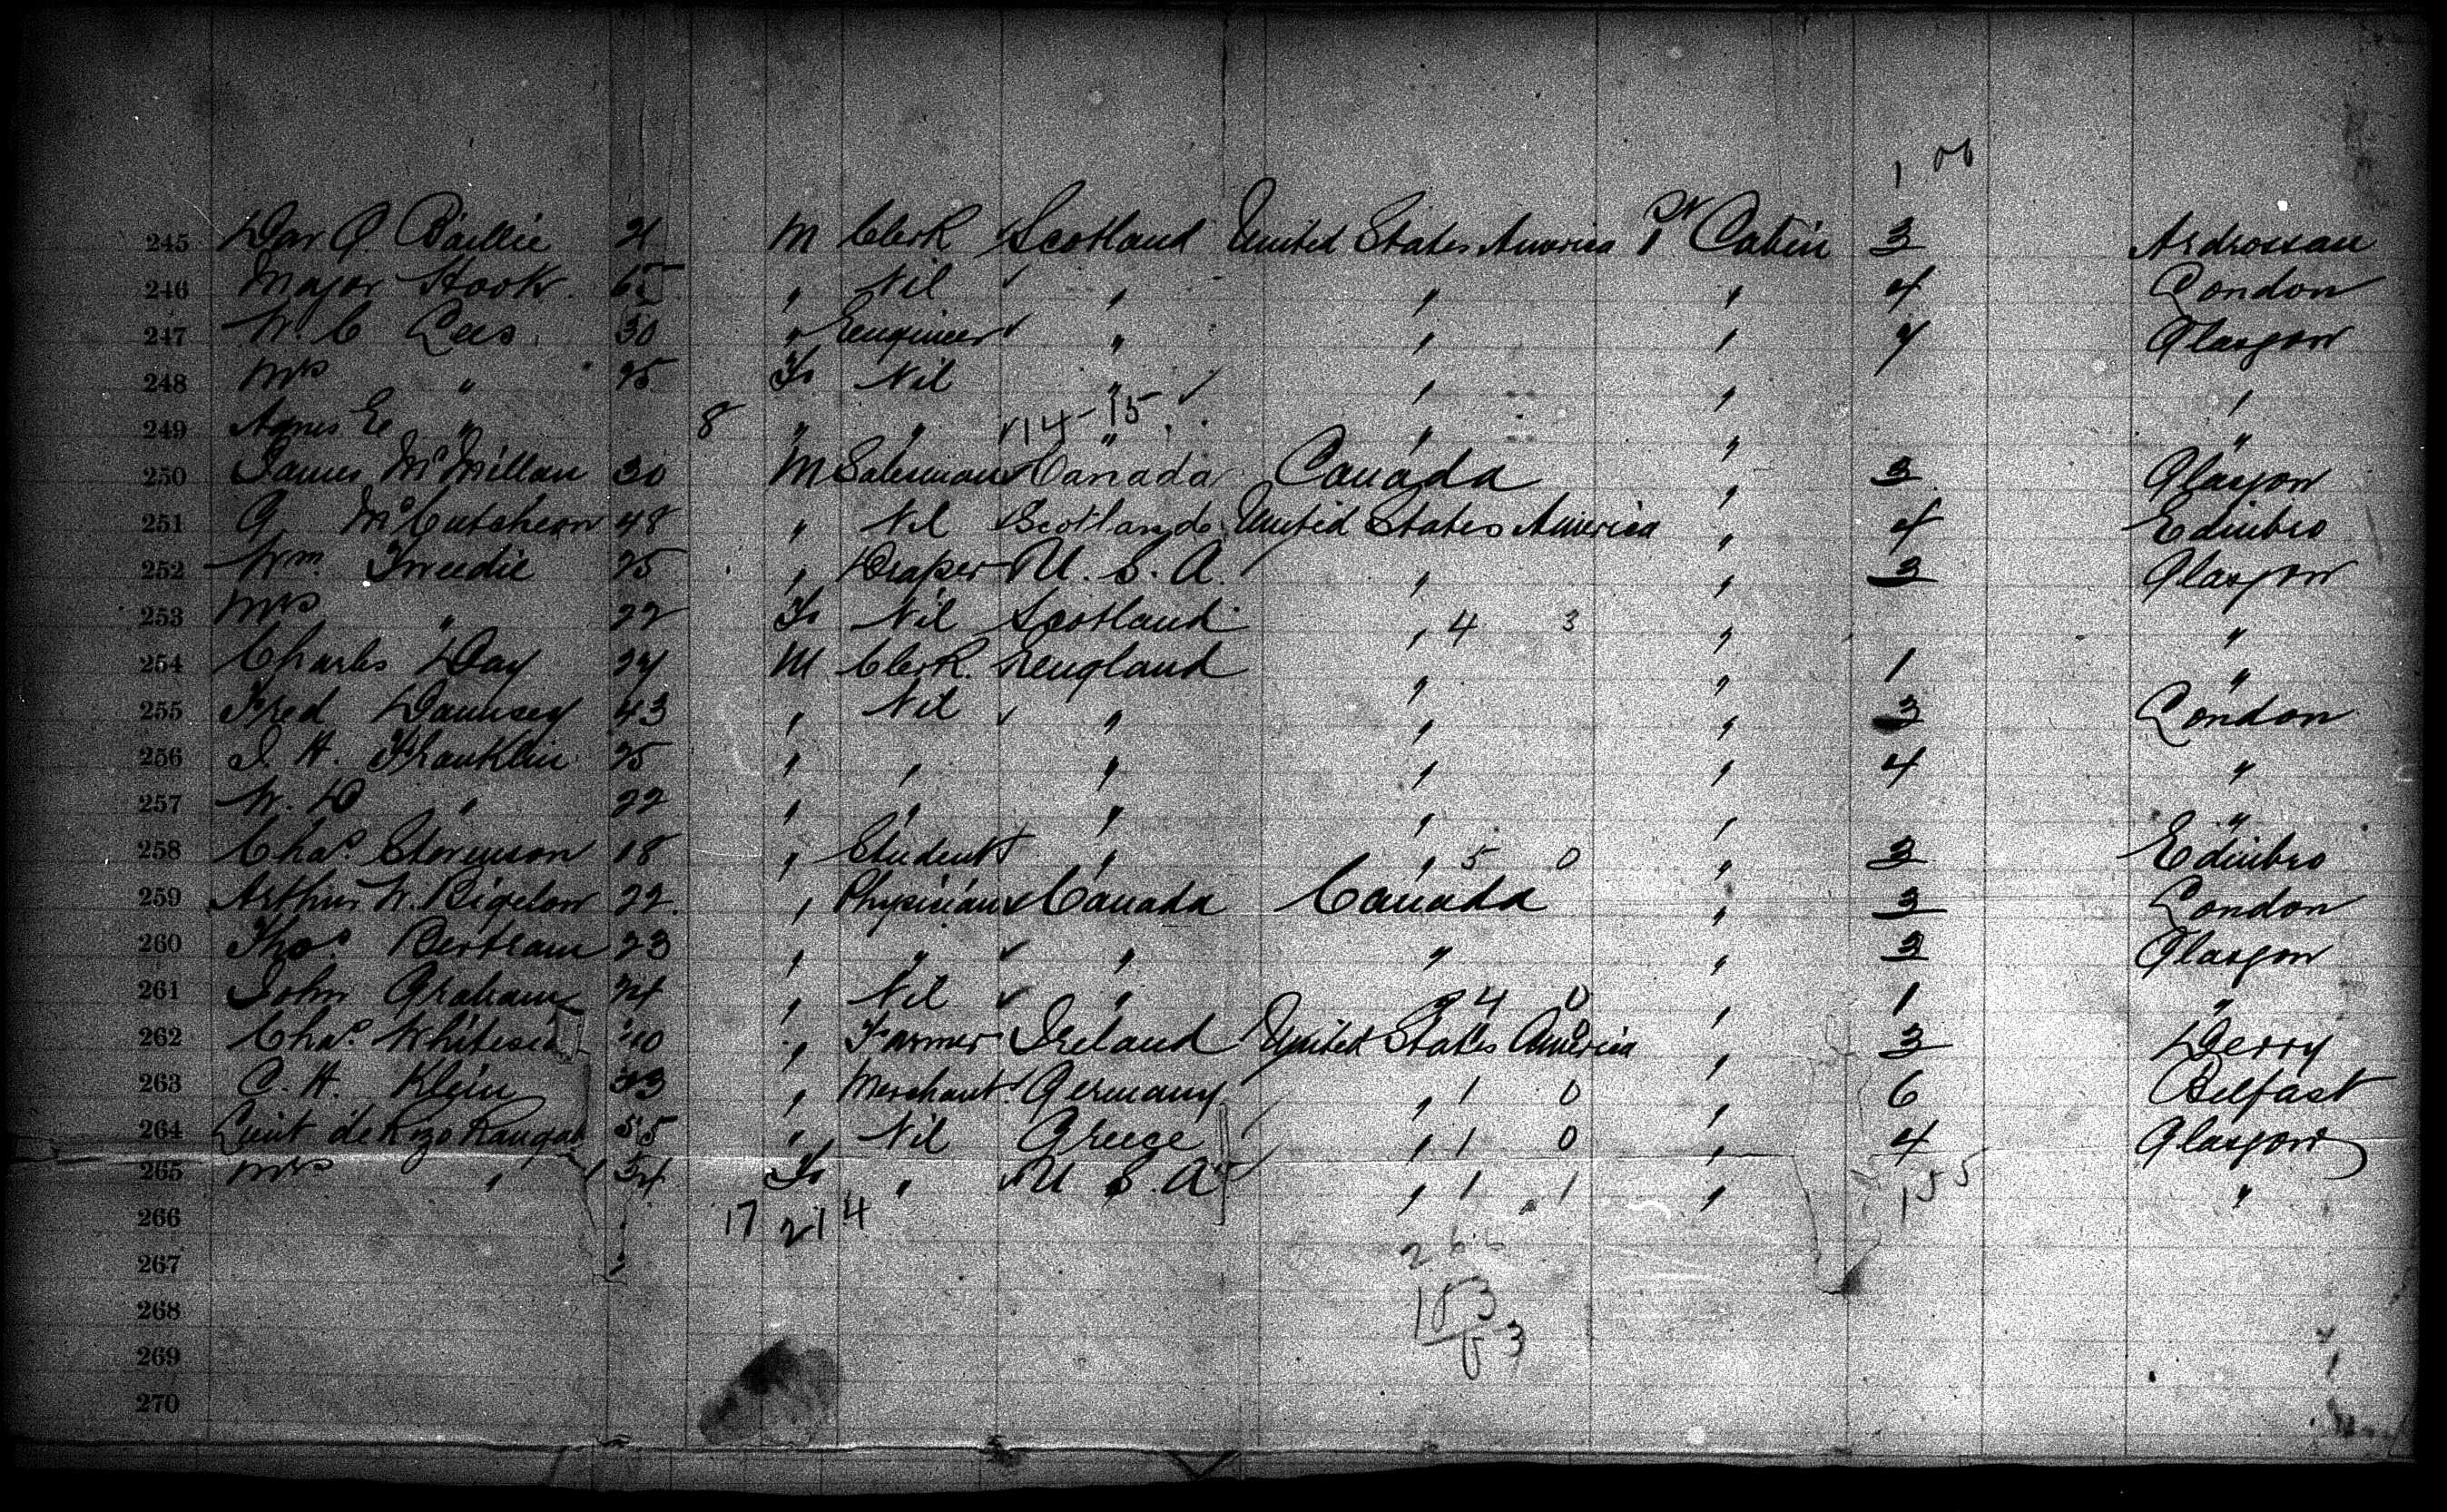 1 00
245 Dav G. Baillie 21 M Clerk Scotland United States America Sn Cabin 3 Ardrossan
246 Major Hook 65 " Nil " " " 4 London
247 W. C. Lees 30 " Engineer " " " 7 Glasgow
248 Mrs " 25 Fr Nil " " " "
249 Agnes E " 8 " " 14-15 " " " "
250 James McMillan 30 M Salesman Canada Canada " 3 Glasgow
251 G McCutcheon 48 " Nil Scotland United States America " 4 Edinbro
252 Wm. Tweedie 25 " Draper U. S. A. " " 3 Glasgow
253 Mrs " 22 Fr Nil Scotland " 4 3 " "
254 Charles Day 24 M Clerk England " " 1 "
255 Fred Dauncey 43 " Nil " " " 3 London
256 J. H. Franklin 25 " " " " " 4 "
257 W. D " 22 " " " " " "
258 Chas. Stevenson 18 " Student " " 5 0 " 3 Edinbro
259 Arthur W. Bigelow 22 " Physician Canada Canada " 3 London
260 Thos. Bertram 23 " " " " " 3 Glasgow
261 John Graham 24 " Nil " " 4 0 " 1 "
262 Chas. 40 " Farmer Ireland United States America " 3 Derry
263 C. H. Klein 33 " Merchant Germany " 1 0 " 6 Belfast
264 de 55 " Nil Greece " 1 0 " 4 Glasgow
265 Mrs " 54 Fr " U. S. A " 1 1 " "
155
266 17 21 4
267
268 183
269 83
270